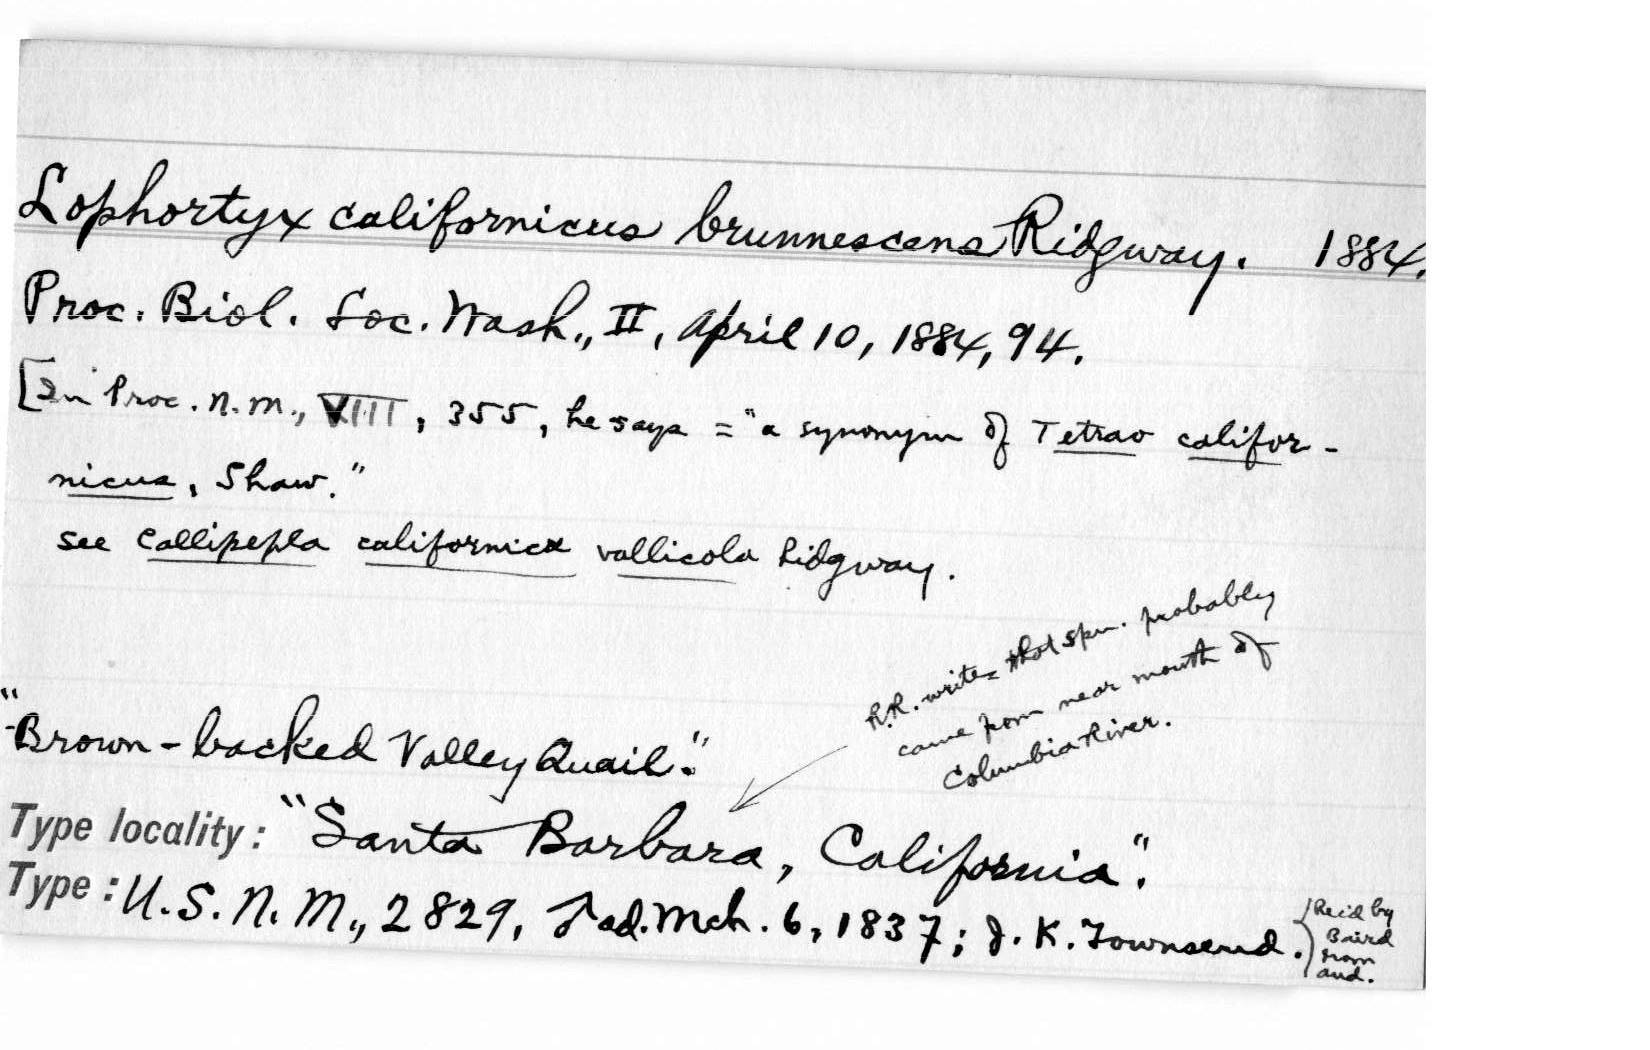 Lophortyx californicus brunnescens Ridgway. 1884.
Proc. Biol. Soc. Wash., II, April 10, 1884, 94.
[In Proc. N. M., VIII, 355, he says = "a synonym of Tetrao califor-
nicus, Shaw."
see Callipepla californica vallicola Ridgway.
R.R. writes that spm. probably
came from near mouth of
Columbia River.
"Brown-backed Valley Quail."
Type locality: "Santa Barbara, California".
Type: U.S.N.M., 2829, ad. Mch. 6, 1837; J. K. Townsend.
Rec'd by
Baird
from
Aud.